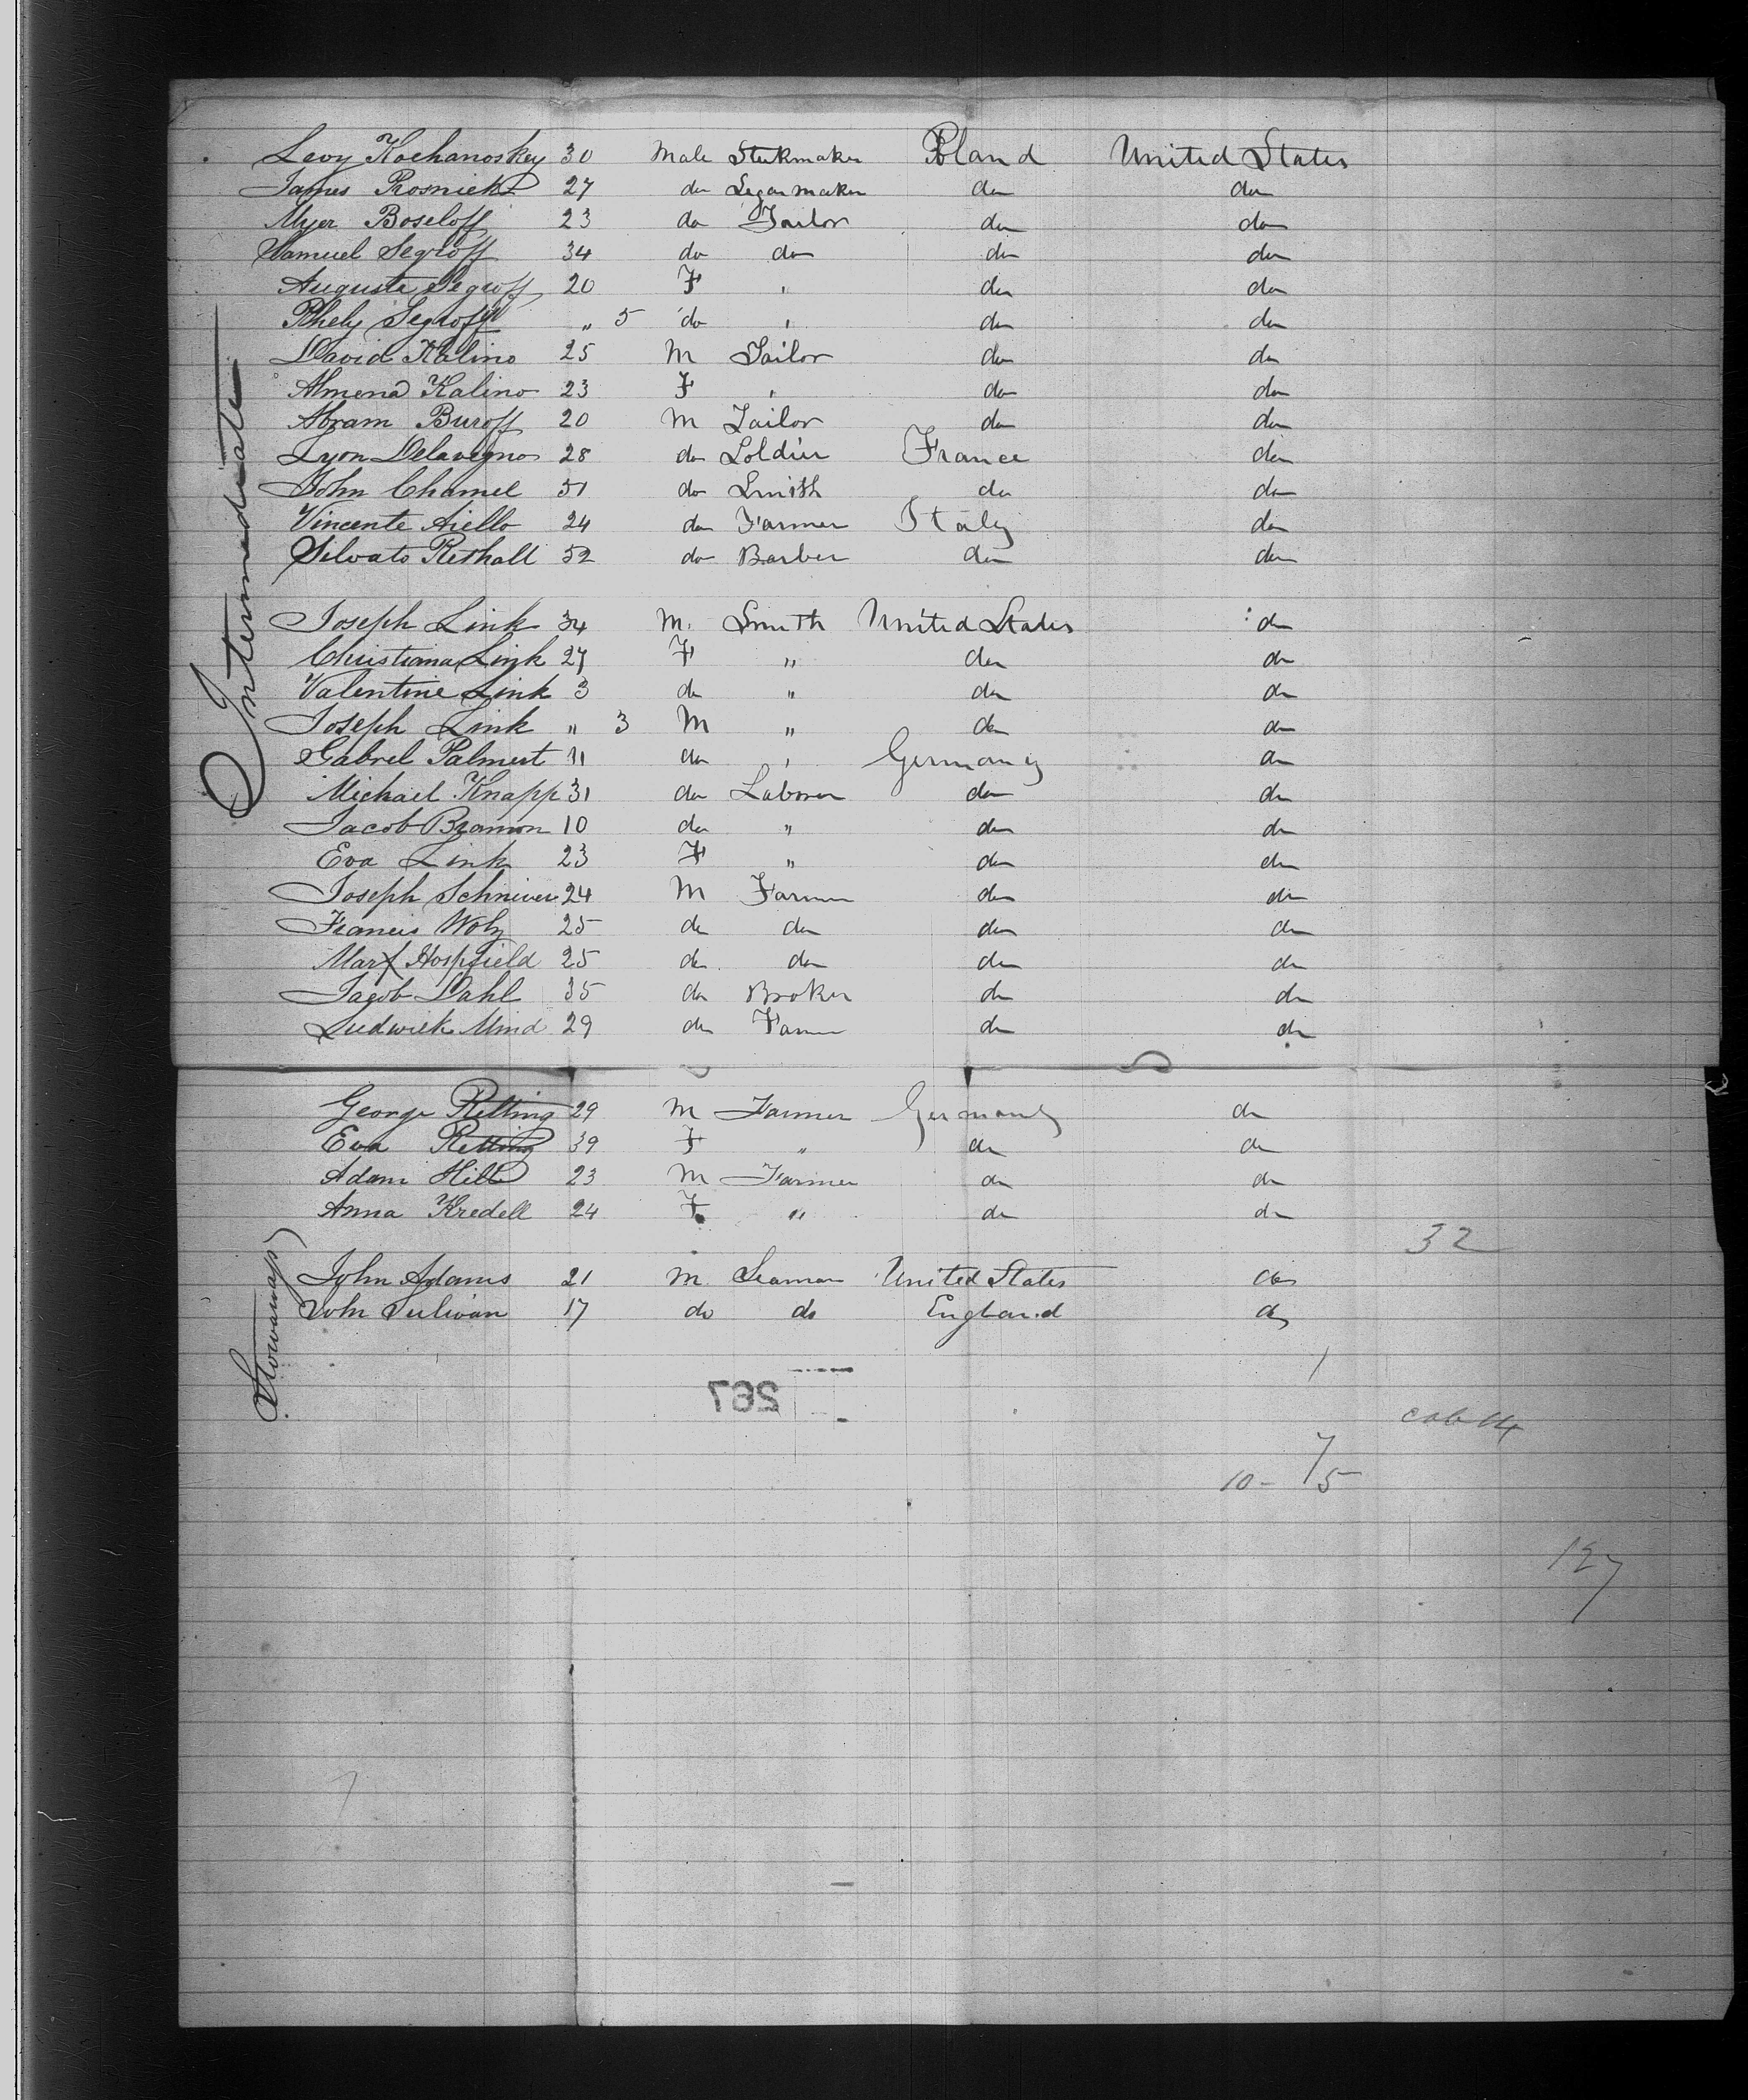 Levy Kochanoskey 30 Male Stickmaker Poland United States
James Prosnick 27 do Segar maker do do
Myer Boseloff 23 do Tailor do do
Samuel Segroff 34 do do do do
Auguste Segroff 20 F " do do
Phely Segroff " 5 do " do do
David Kalino 25 M Tailor do do
Almena Kalino 23 F " do do
Abram Buroff 20 M Tailor do do
Lyon Delavigno 28 do Soldier France do
John Chamel 51 do Smith do do
Vincente Aiello 24 do Farmer Italy do
Silvato Rethall 52 do Barber do do
Intermediate
Joseph Link 34 M. Smith United States do
Christiana Link 27 F " do do
Valentine Link 3 do " do do
Joseph Link " 3 M " do do
Gabrel Palmert 11 do " Germany do
Michael Knapp 31 do Laborer do do
Jacob Bramon 10 do " do do
Eva Link 23 F " do do
Joseph Schniver 24 M Farmer do do
Francis Woly 25 do do do do
Marx Hospfield 25 do do do do
Jacob Dahl 35 do Broker do do
Ludwick Mind 29 do Farmer do do
George Retting 29 M Farmer Germany do
Eva Retting 39 F " do do
Adam Hill 23 M Farmer do do
Anna Kredell 24 F " do do
32
Stowaways
John Adams 21 M Seaman United States do
John Sulivan 17 do do England do
267
10- 75
127